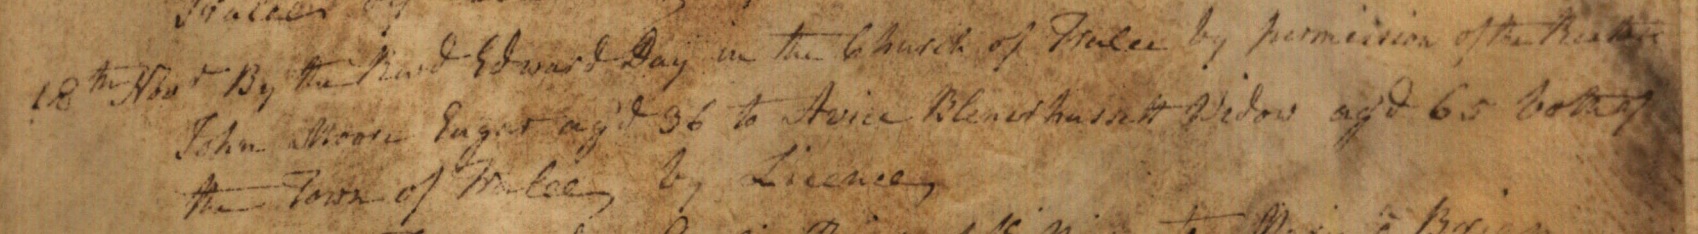 Tralee
18th Novr By the Revd Edward Day in the Church of Tralee by permission of the Rector
John Moore Gager ag'd 36 to Avice Blenerhassett Widow ag'd 65 both of
the Town of Tralee, by Licence,
to